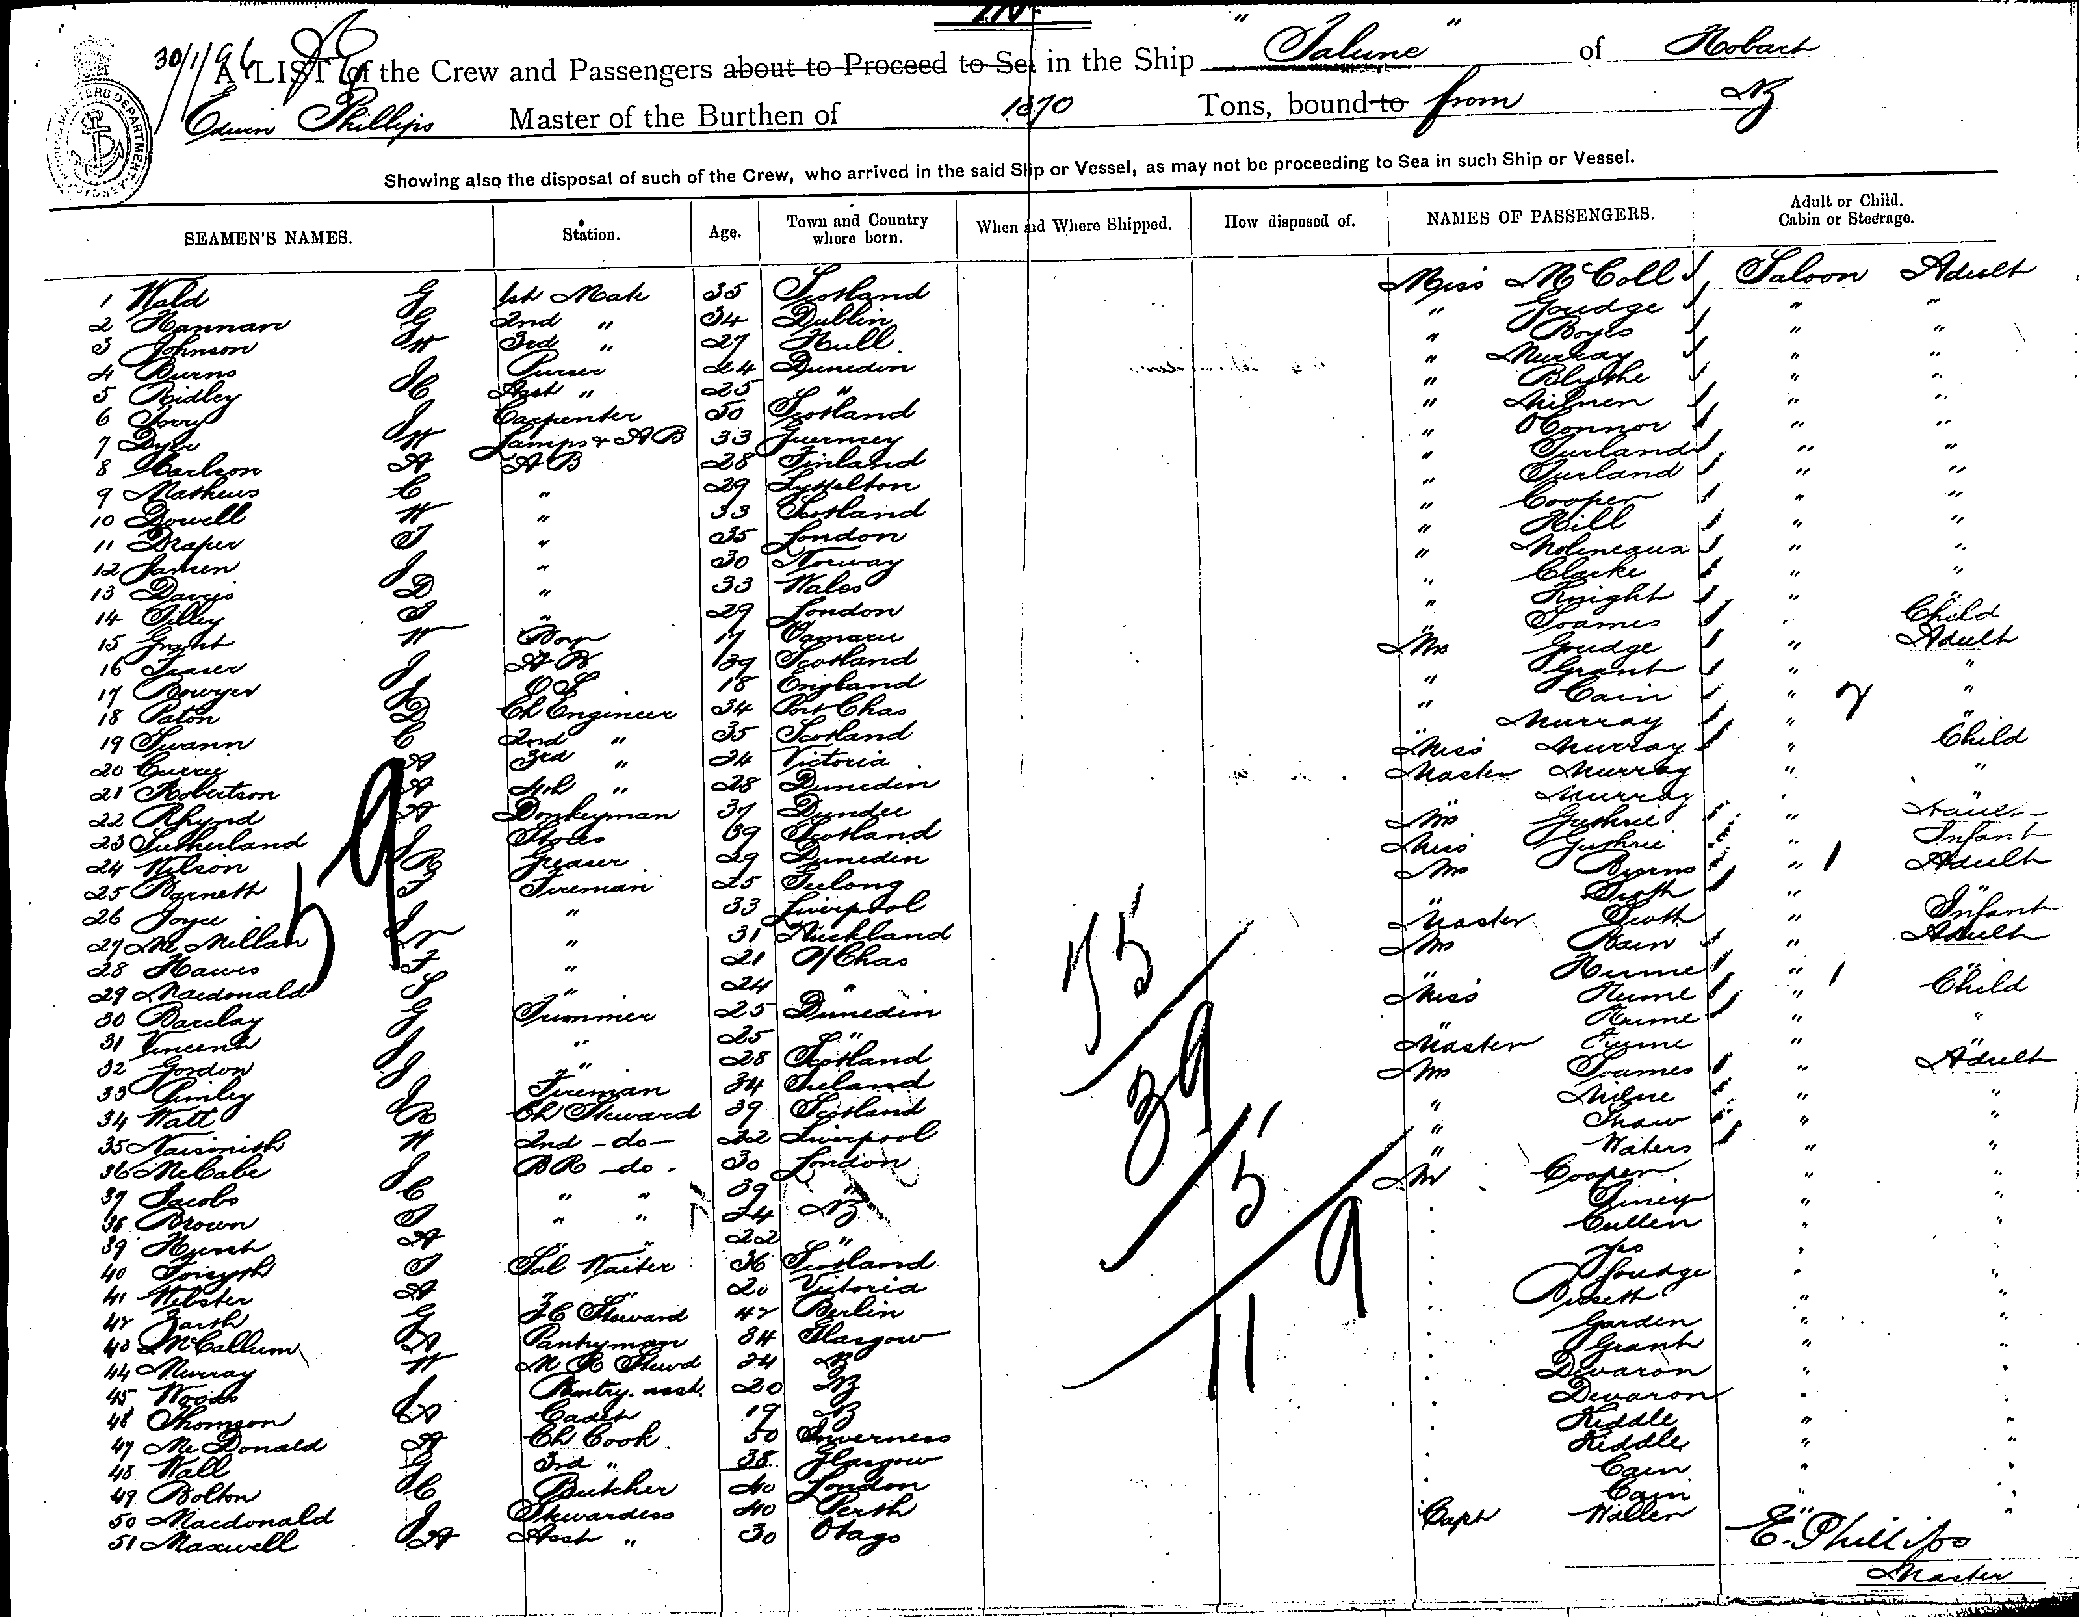 30/1/96
A LIST of the Crew and Passengers about to Proceed to Sea in the Ship " Talune " of Hobart
Edwin Phillips Master of the Burthen of 1370 Tons, bound to from NZ
Showing also the disposal of such of the Crew, who arrived in the said Ship or Vessel, as may not be proceeding to Sea in such Ship or Vessel.
SEAMEN'S NAMES. Station. Age. Town and Country where born. When and Where Shipped. How disposed of. NAMES OF PASSENGERS. Adult or Child. Cabin or Steerage.
1 Wald G 1st Mate 35 Scotland
2 Hannan G 2nd " 34 Dublin
3 Johnson H 3rd " 27 Hull
4 Burns Purser 24 Dunedin
5 Ridley Asst " 25 "
6 J Carpenter 50 Scotland
7 Dyer H Lamps & AB 33 Guernsey
8 Karlson A AB 28 Finland
9 Mathews C " 29 Lyttelton
10 Dowell H " 33 Scotland
11 Draper T " 35 London
12 Jansen J " 30 Norway
13 Davis D " 33 Wales
14 Tilley T " 29 London
15 Grant H Boy 17 Oamaru
16 Fraser J AB 39 Scotland
17 Bowyer OS 18 England
18 Paton D Ch Engineer 34 Port Chas
19 Swann C 2nd " 35 Scotland
20 Currie A 3rd " 24 Victoria
21 Robertson A 4th " 28 Dunedin
22 Rhynd A Donkeyman 37 Dundee
23 Sutherland J Stores 39 Scotland
24 Wilson R Greaser 29 Dunedin
25 Barnett T Fireman 25 Geelong
26 Joyce J " 33 Liverpool
27 McMillan " 31 Auckland
28 Hawes F " 21 P/Chas
29 Macdonald S " 24 "
30 Barclay G Trimmer 25 Dunedin
31 Vincent J " 25 "
32 Gordon J " 28 Scotland
33 Finley Fireman 34 Ireland
34 Watt Ch Steward 39 Scotland
35 Naismith H 2nd - do - 22 Liverpool
36 McCabe J BR - do - 30 London
37 Jacobs C " " 39 "
38 Brown T " " 24 NZ
39 Hurst A " " 22 "
40 Forsyth T Sal Waiter 36 Scotland
41 Webster A " " 20 Victoria
42 Zarth G FC Steward 42 Berlin
43 McCallum Pantryman 34 Glasgow
44 Murray H M R Stewd 24 NZ
45 Woods J Pantry asst. 20 NZ
46 Thomson Cadet 19 NZ
47 McDonald A Ch Cook 50 Inverness
48 Wall G 3rd " 38 Glasgow
49 Bolton C Butcher 40 London
50 Macdonald J Stewardess 40 Perth
51 Maxwell A Asst " 30 Otago
59
75
39
5
119
Miss McColl Saloon Adult
" Goudge " "
" Boyes " "
" Murray " "
" Blythe " "
" Milnen " "
" O'Connor " "
" Burland " "
" Burland " "
" Cooper " "
" Hill " "
" Molineaux " "
" Clarke " "
" Knight " "
" Soames " Child
Mrs Goudge " Adult
" Grant " "
" Cain " "
" Murray " "
Miss Murray " Child
Master Murray " "
" Murray " "
Mrs Guthrie " Adult
Miss Guthrie " Infant
Mrs Byrns " Adult
" Scott " "
Master Scott " Infant
Mrs Bain " Adult
" Hume " "
Miss Hume " Child
" Hume " "
Master Hume " "
Mrs Soames " Adult
" Milne " "
" Shaw " "
" Waters " "
Mr Cooper " "
" Finey " "
" Cullen " "
" Goudge " "
" Bissett " "
" Garden " "
" Grant " "
" Dewaron " "
" Dewaron " "
" Kiddle " "
" Kiddle " "
" Cain " "
" Cain " "
Capt Waller " "
E. Phillips
Master